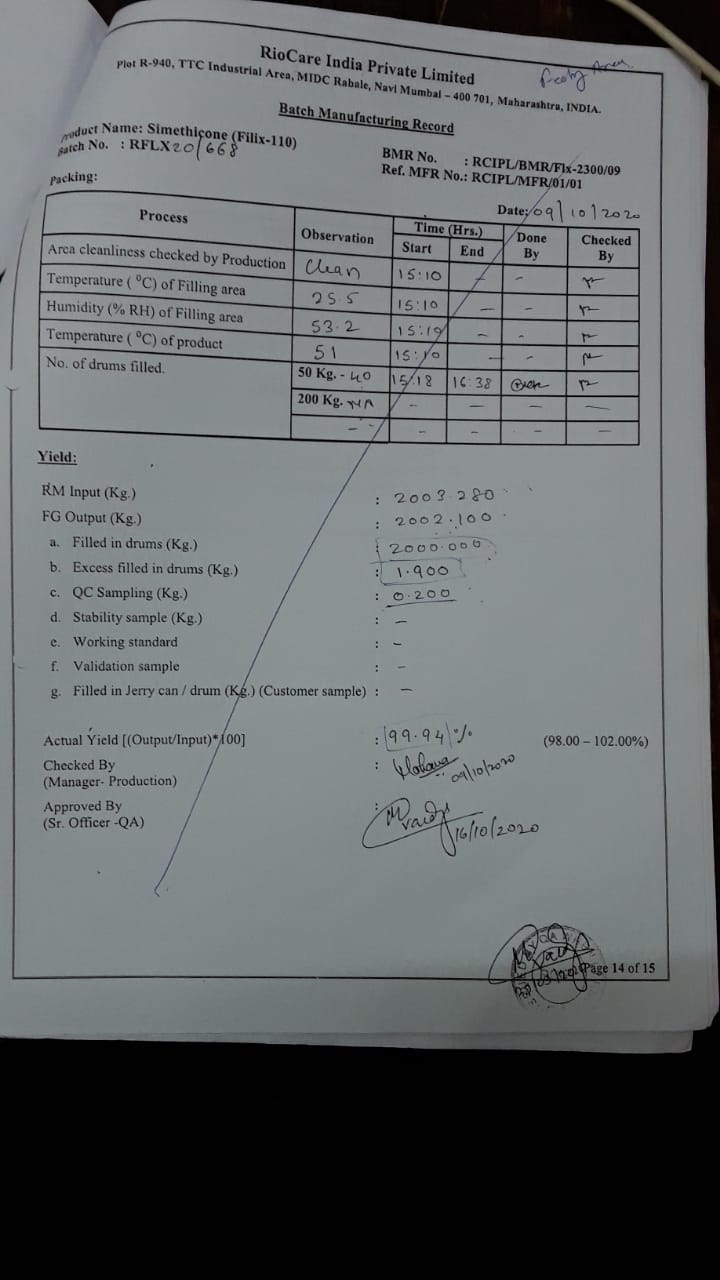 RioCare India Private Limited
Plot R-940, TTC Industrial Area, MIDC Rabale, Navi Mumbai – 400 701, Maharashtra, INDIA.
Batch Manufacturing Record
Product Name: Simethicone (Filix-110)
Batch No. : RFLX20/668
BMR No. : RCIPL/BMR/Flx-2300/09
Ref. MFR No.: RCIPL/MFR/01/01
Packing:
Date: 09/10/2020
Process Observation Time (Hrs.) Done By Checked By
Start End
Area cleanliness checked by Production Clean 15:10 – –
Temperature ( °C) of Filling area 25.5 15:10 – –
Humidity (% RH) of Filling area 53.2 15:10 – –
Temperature ( °C) of product 51 15:10 – –
No. of drums filled. 50 Kg. - 40 15:18 16:38
200 Kg. NA – – – –
– – – – – –
Yield:
RM Input (Kg.) : 2003.280
FG Output (Kg.) : 2002.100
a. Filled in drums (Kg.) : 2000.000
b. Excess filled in drums (Kg.) : 1.900
c. QC Sampling (Kg.) : 0.200
d. Stability sample (Kg.) : –
e. Working standard : –
f. Validation sample : –
g. Filled in Jerry can / drum (Kg.) (Customer sample) : –
Actual Yield [(Output/Input)*100] : 99.94 % (98.00 – 102.00%)
Checked By :
(Manager- Production) 09/10/2020
Approved By :
(Sr. Officer -QA) 16/10/2020
Page 14 of 15